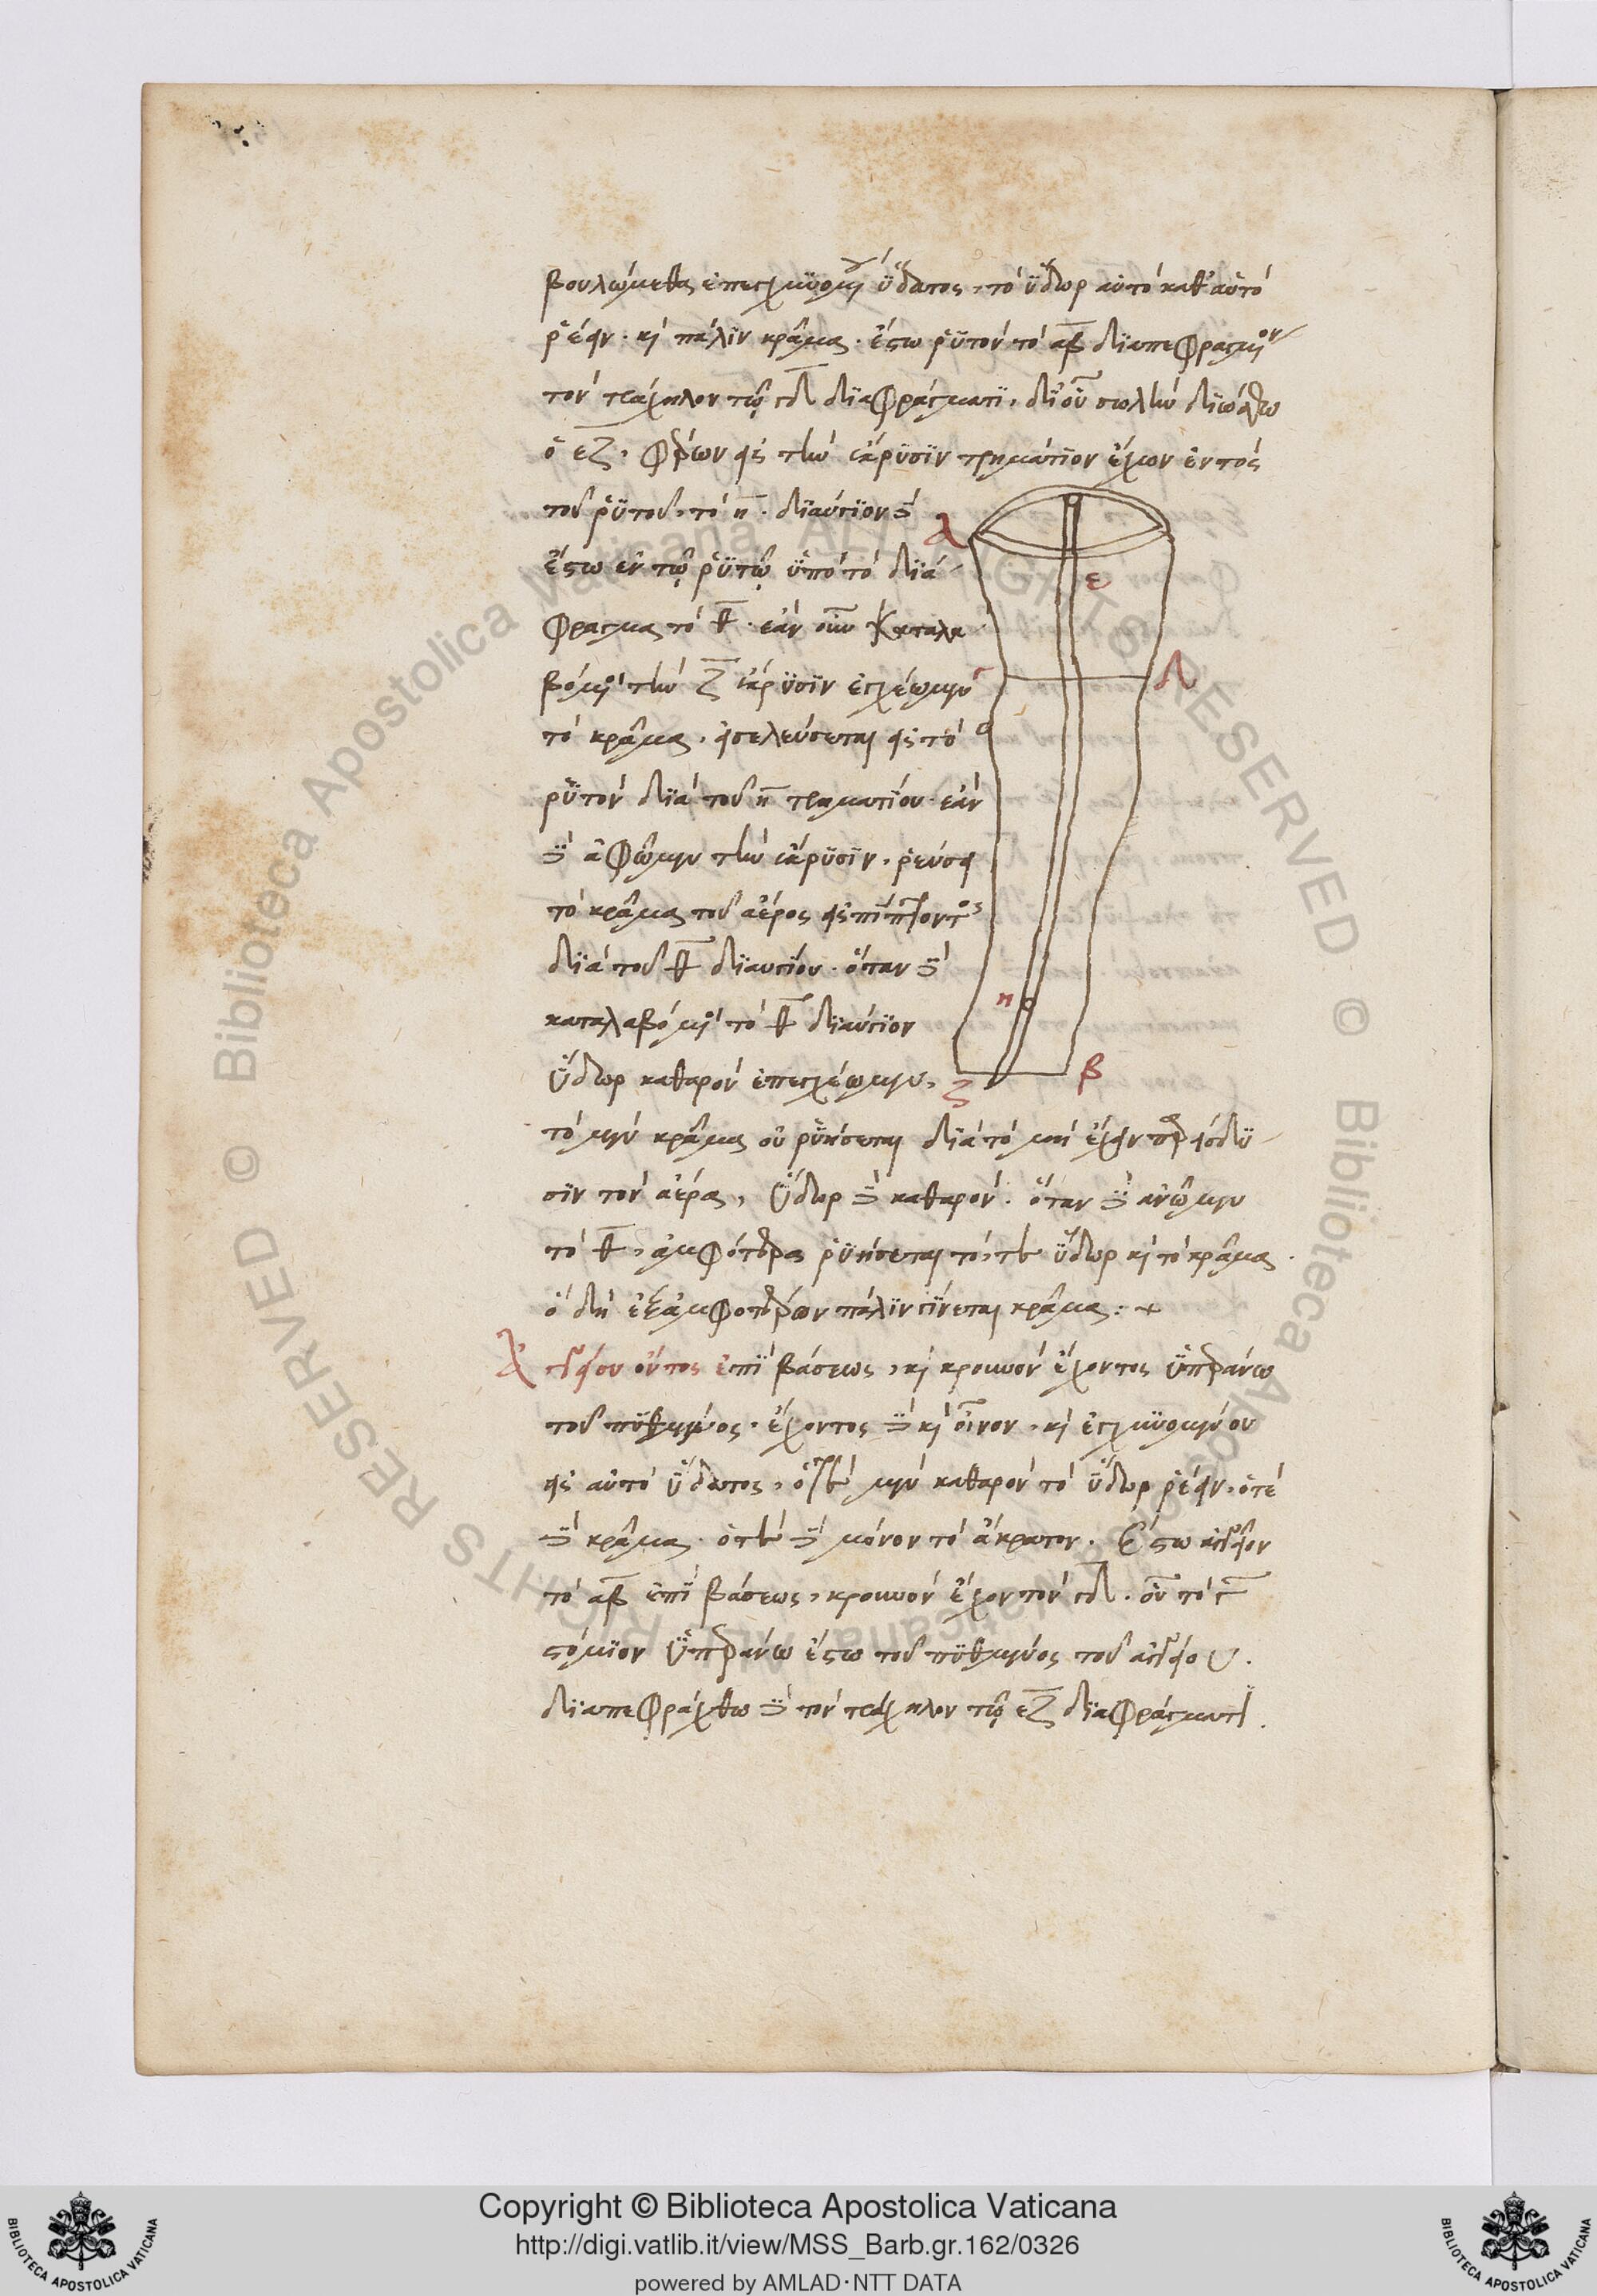 βουλώμεθα ἐπεγχυομένου ὕδατος, τὸ ὕδωρ αὐτὸ καθ' αὑτὸ
ῥέειν. καὶ πάλιν κρᾶμα. ἔστω ῥυτὸν τὸ αβ διαπεφραγμένον
τὸν τράχηλον τῷ γδ διαφράγματι, δι' οὗ σωλὴν διώσθω
ὁ εζ, φέρων εἰς τὴν ἔκρυσιν τρημάτιον ἔχων ἐντὸς
τοῦ ῥυτοῦ, τὸ η. διαύγιον δὲ
ἔστω ἐν τῷ ῥυτῷ ὑπὸ τὸ διά
φραγμα τὸ θ. ἐὰν οὖν καταλα
βόμενοι τὴν ζ ἔκρυσιν ἐγχέωμεν
τὸ κρᾶμα, εἰσελεύσεται εἰς τὸ
ῥυτὸν διὰ τοῦ η τρηματίου. ἐὰν
δὲ ἀφῶμεν τὴν ἔκρυσιν, ῥεύσει
τὸ κρᾶμα τοῦ ἀέρος εἰσπίπτοντος
διὰ τοῦ θ διαυγίου. ὅταν δὲ
καταλαβόμενοι τὸ θ διαύγιον
ὕδωρ καθαρὸν ἐπεγχέωμεν,
τὸ μὲν κρᾶμα οὐ ῥυήσεται διὰ τὸ μὴ ἔχειν παρείσδυ
σιν τὸν ἀέρα, ὕδωρ δὲ καθαρόν. ὅταν δὲ ἀνῶμεν
τὸ θ, ἀμφότερα ῥυήσεται τό, τε ὕδωρ καὶ τὸ κρᾶμα
ὃ δὴ ἐξ ἀμφοτέρων πάλιν γίνεται κρᾶμα: +
Ἀγγείου ὄντος ἐπὶ βάσεως, καὶ κρουνὸν ἔχοντος ὑπεράνω
τοῦ πυθμένος. ἔχοντος δὲ καὶ οἶνον, καὶ ἐγχυομένου
εἰς αὐτὸ ὕδατος, ὁτὲ μὲν καθαρὸν τὸ ὕδωρ ῥέειν, ὁτὲ
δὲ κρᾶμα. ὁτὲ δὲ μόνον τὸ ἄκρατον. Ἔστω ἀγγεῖον
τὸ αβ ἐπὶ βάσεως, κρουνὸν ἔχον τὸν γδ. οὗ τὸ γ
στόμιον ὑπεράνω ἔστω τοῦ πυθμένος τοῦ ἀγγείου.
διαπεφράχθω δὲ τὸν τράχηλον τῷ εζ διαφράγματι.
α
ε
δ
η
ζ
β
© Biblioteca Apostolica Vaticana ALL RIGHTS RESERVED
Copyright © Biblioteca Apostolica Vaticana
http://digi.vatlib.it/view/MSS_Barb.gr.162/0326
powered by AMLAD·NTT DATA
BIBLIOTECA APOSTOLICA VATICANA
BIBLIOTECA APOSTOLICA VATICANA